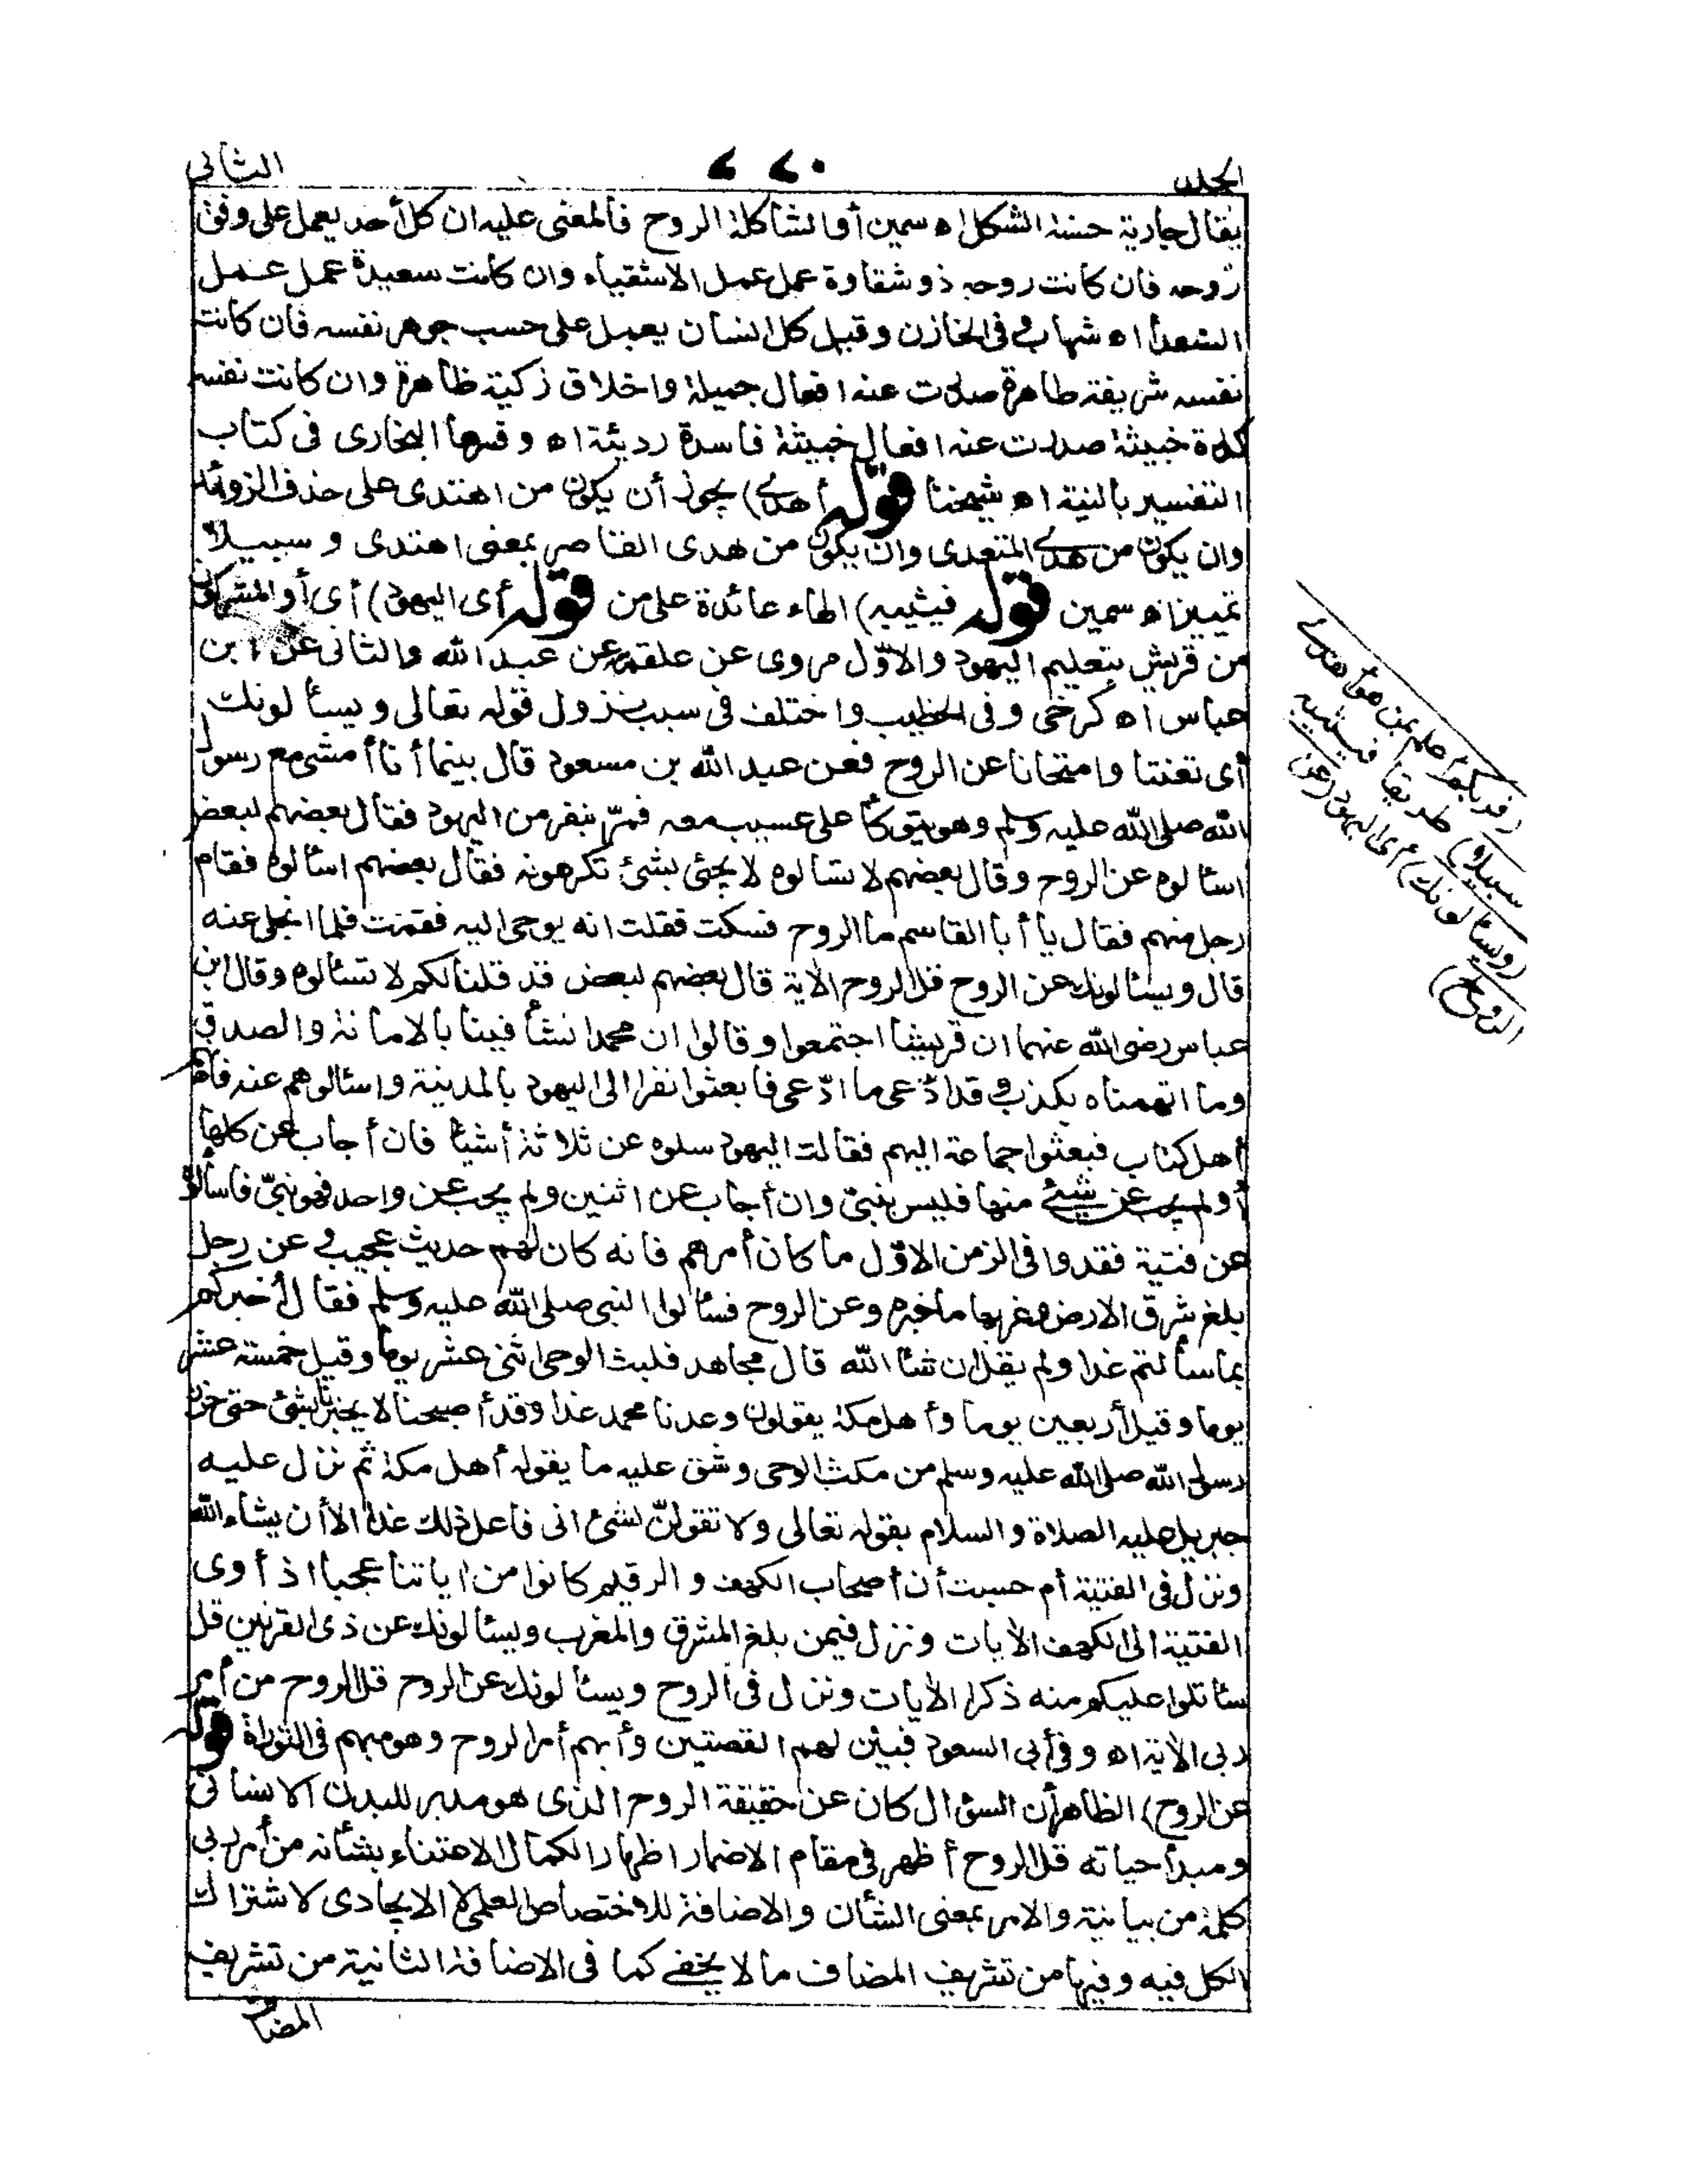 الجلد
٤٤٠
الثانى
يقال جارية حسنة الشكل اه سمين أو الشاكلة الروح فالمعنى عليه ان كل أحد يعمل على وفق
روحه فان كانت روحه ذو شقاوة عمل عمل الاشقياء وان كانت سعيدة عمل عمل
السعدا اه شهاب وفى الخازن وقيل كل انسان يعمل على حسب جوهر نفسه فان كانت
نفسه شريفة طاهرة صدرت عنه افعال جميلة واخلاق زكية ظاهرة وان كانت نفسه
كدرة خبيثة صدرت عنه افعال خبيثة فاسدة رديئة اه وفسرها البخارى فى كتاب
التفسير بالنية اه شيخنا قوله أهدى) يجوز أن يكون من اهتدى على حذف الزوائد
وان يكون من هدى المتعدى وان يكون من هدى القاصر بمعنى اهتدى و سبيلا
تمييز اه سمين قوله فيثيبه) الهاء عائدة على من قوله أى اليهود) أى أو المشركون
من قريش بتعليم اليهود والاوّل مروى عن علقمة عن عبد الله والثانى عن ابن
عباس اه كرخى وفى الخطيب واختلف فى سبب نزول قوله تعالى ويسألونك
أى تعنتا وامتحانا عن الروح فعن عبد الله بن مسعود قال بينما أنا أمشى مع رسول
الله صلى الله عليه وسلم وهو يتوكأ على عسيب معه فمرّ بنفر من اليهود فقال بعضهم لبعض
اسئالوه عن الروح وقال بعضهم لا تسالوه لا يجئى بشئ تكرهونه فقال بعضهم اسئالوه فقام
رجل منهم فقال يا أبا القاسم ما الروح فسكت فقلت انه يوحى اليه فقمت فلما انجلى عنه
قال ويسئالونك عن الروح قل الروح الاية قال بعضهم لبعض قد قلنا لكم لا تسئالوه وقال ابن
عباس رضى الله عنهما ان قريشا اجتمعوا وقالوا ان محمدا نشأ فينا بالامانة والصدق
وما اتهمناه بكذب وقد ادّعى ما ادّعى فابعثوا نفرا الى اليهود بالمدينة واسئالوهم عنه فانهم
أهل كتاب فبعثوا جماعة اليهم فقالت اليهود سلوه عن ثلاثة أشيا فان أجاب عن كلها
أو لم يجب عن شئ منها فليس بنبىّ وان أجاب عن اثنين ولم يجب عن واحد فهو نبىّ فاسألوه
عن فتية فقدوا فى الزمن الاوّل ما كان أمرهم فانه كان لهم حديث عجيب وعن رجل
بلغ شرق الارض وغربها ما خبره وعن الروح فسئالوا النبى صلى الله عليه وسلم فقال أخبركم
بما سألتم غدا ولم يقل ان شا الله قال مجاهد فلبث الوحى اثنى عشر يوما وقيل خمسة عشر
يوما وقيل أربعين يوما وأهل مكة يقولون وعدنا محمد غدا وقد أصبحنا لا يخبرنا بشئ حتى حزن
رسول الله صلى الله عليه وسلم من مكث الوحى وشق عليه ما يقوله أهل مكة ثم نزل عليه
جبريل عليه الصلاة والسلام بقوله تعالى ولا تقولنّ لشئ انى فاعل ذلك غدا الا أن يشاء الله
ونزل فى الفتية أم حسبت أن أصحاب الكهف والرقيم كانوا من اياتنا عجبا اذ أوى
الفتية الى الكهف الأيات ونزل فيمن بلغ المشرق والمغرب ويسئالونك عن ذى القرنين قل
سئاتلوا عليكم منه ذكرا الأيات ونزل فى الروح ويسئالونك عن الروح قل الروح من أمر
ربى الأية اه وفى أبى السعود فبين لهم القصتين وأبهم أمر الروح وهو مبهم فى التوراة قوله
عن الروح) الظاهر أن السؤال كان عن حقيقة الروح الذى هو مدبر للبدن الانسانى
ومبدأ حياته قل الروح أظهر فى مقام الاضمار اظهارا لكمال الاعتناء بشأنه من أمر ربى
كلمة من بيانية والامر بمعنى الشأن والاضافة للاختصاص العلمى لا الايجادى لاشتراك
الكل فيه وفيها من تشريف المضاف ما لا يخفى كما فى الاضافة الثانية من تشريف
المضاف
(فربكم أعلم بمن هو أهدى
سبيلا) طريقا فيثيبه
(ويسألونك) أى اليهود (عن
الروح)